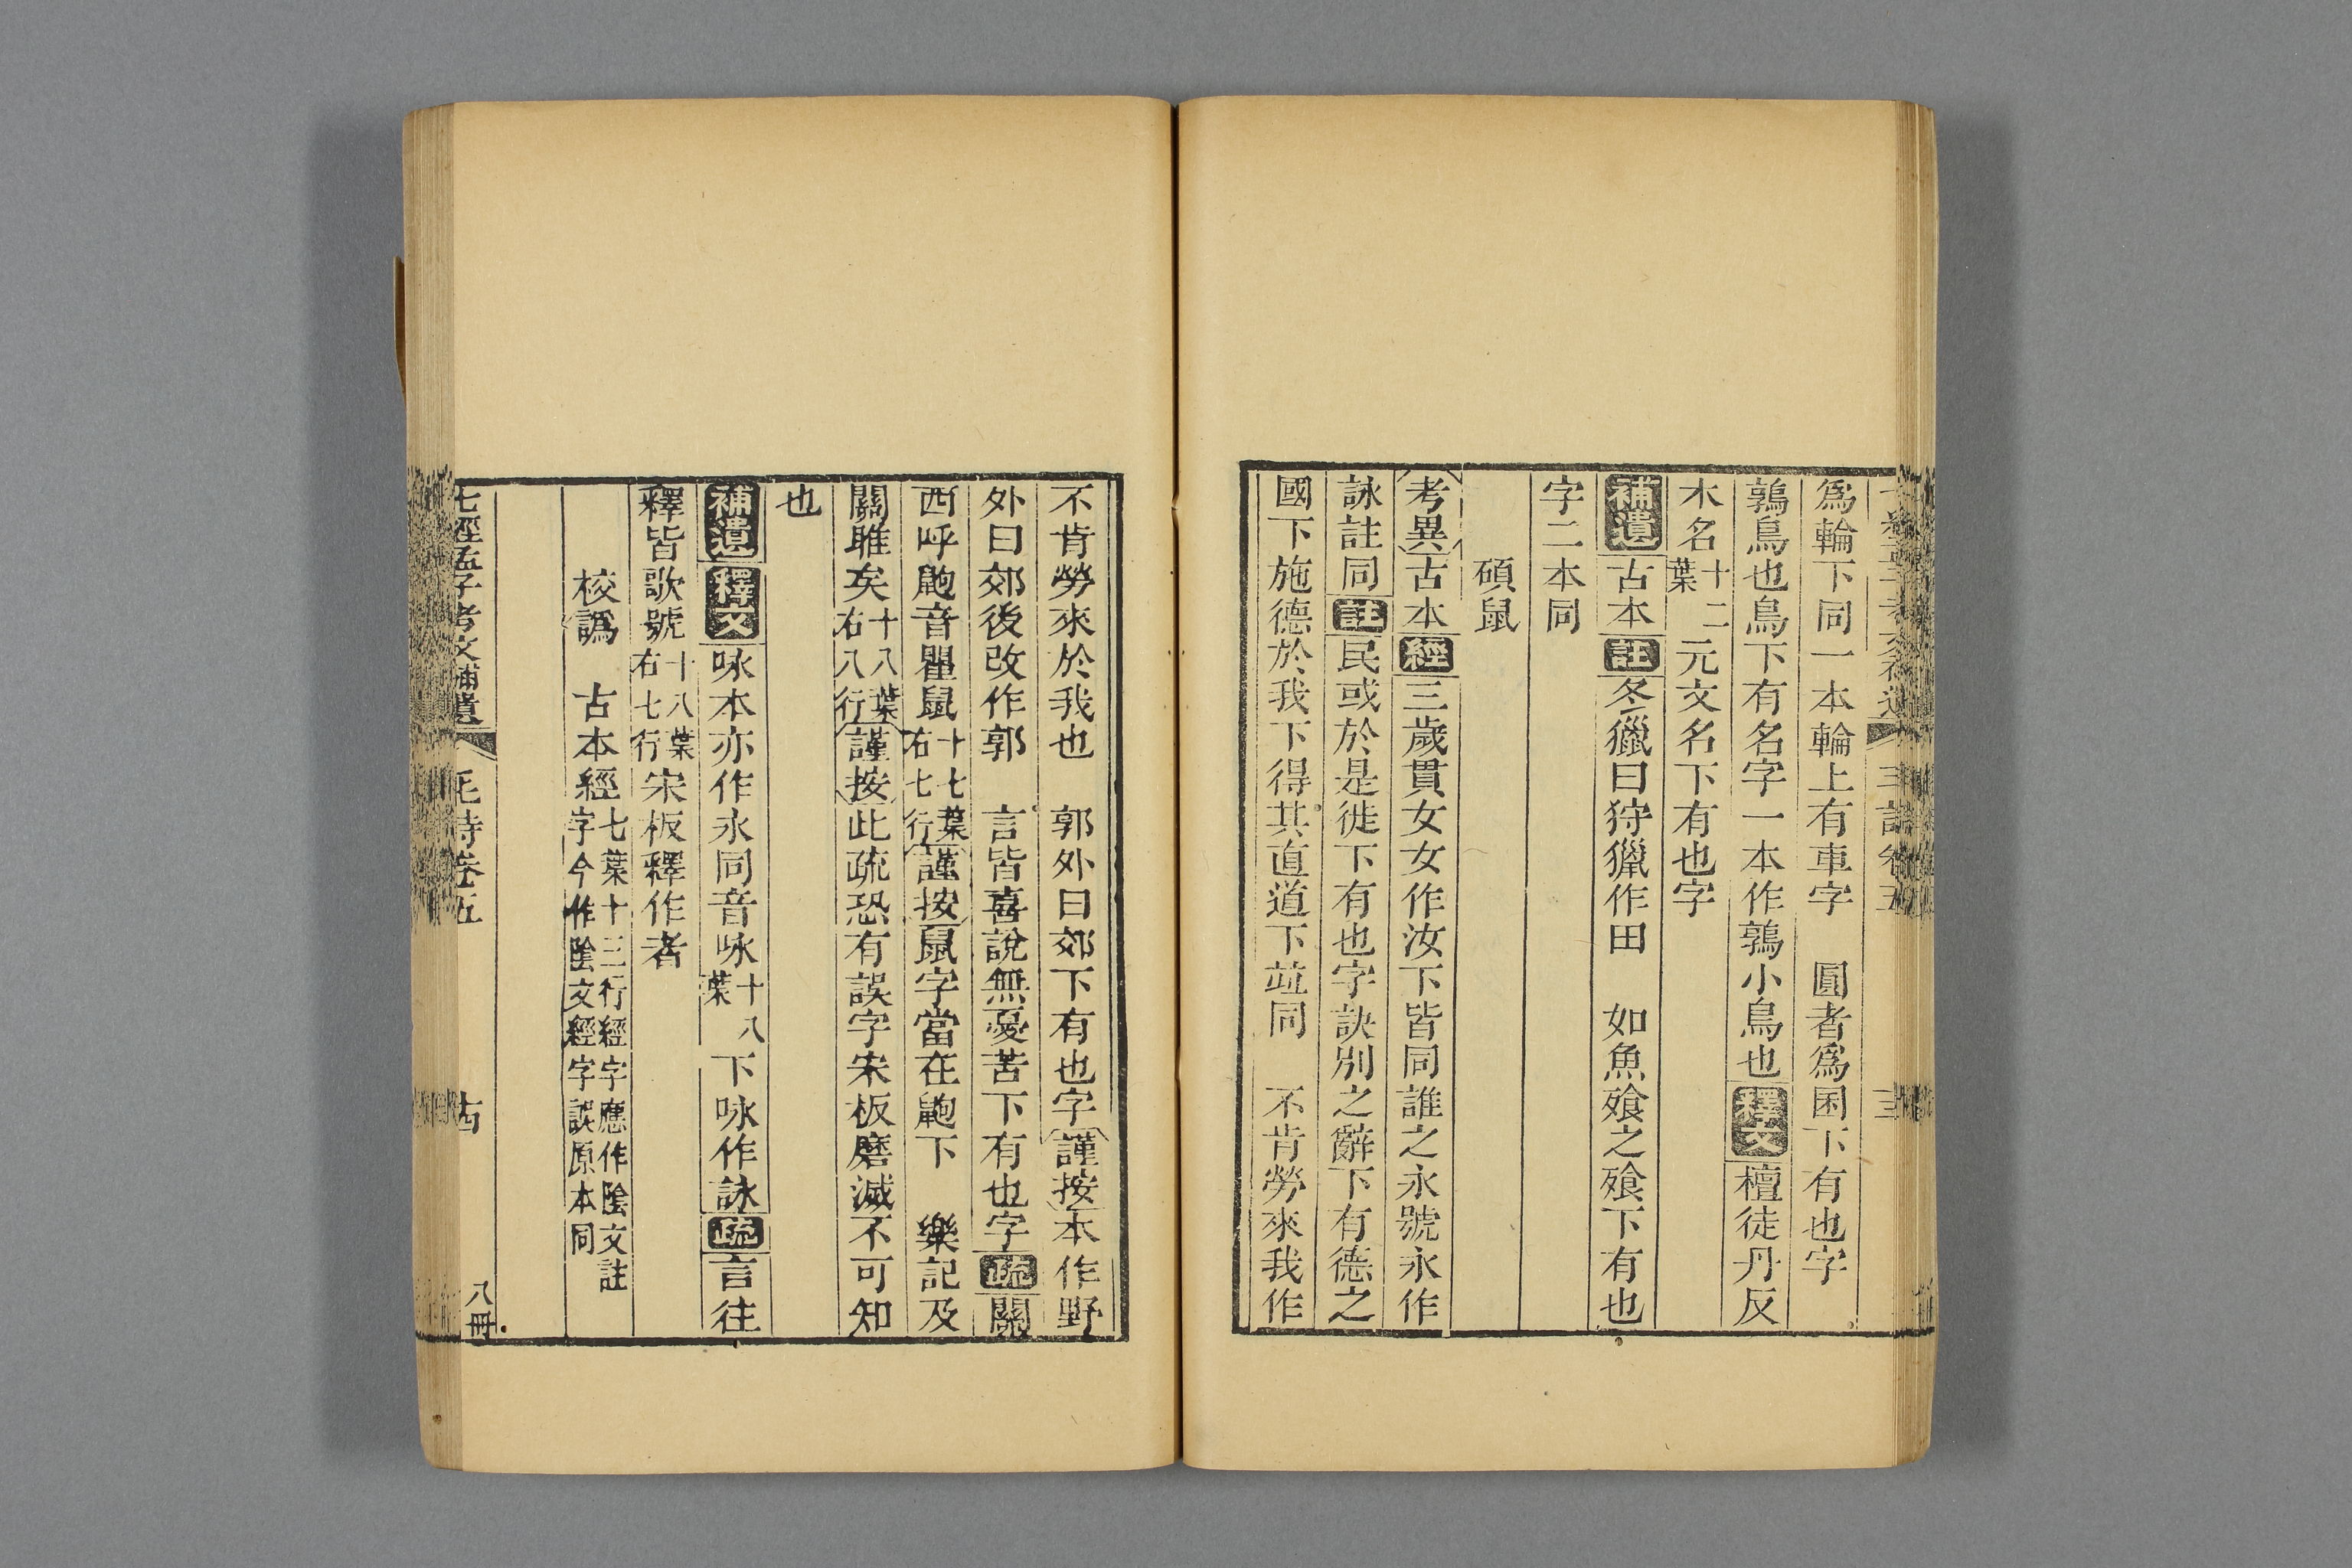 爲輪下同一本輪上有車字　圓者爲囷下有也字
鶉鳥也鳥下有名字一本作鶉小鳥也釋文檀徒丹反
木名十二葉元文名下有也字
補遺古本註冬獵曰狩獵作田　如魚飱之飱下有也
字二本同
碩鼠
考異古本經三歲貫女女作汝下皆同誰之永號永作
詠註同註民或於是徙下有也字訣別之辭下有德之
國下施德於我下得其直道下竝同　不肯勞來我作
不肯勞來於我也　郭外曰郊下有也字謹按本作野
外曰郊後改作郭　言皆喜說無憂苦下有也字疏關
西呼鼩音瞿鼠十七葉右七行謹按鼠字當在鼩下　樂記及
關雎矣十八葉右八行謹按此疏恐有誤字宋板磨滅不可知
也
補遺釋文咏本亦作永同音咏十八葉下咏作詠疏言往
釋皆歌號十八葉右七行宋板釋作者
校譌　古本經七葉十三行經字應作陰文註字今作陰文經字誤原本同
七經孟子考文補遺　毛詩卷五　十四　八冊